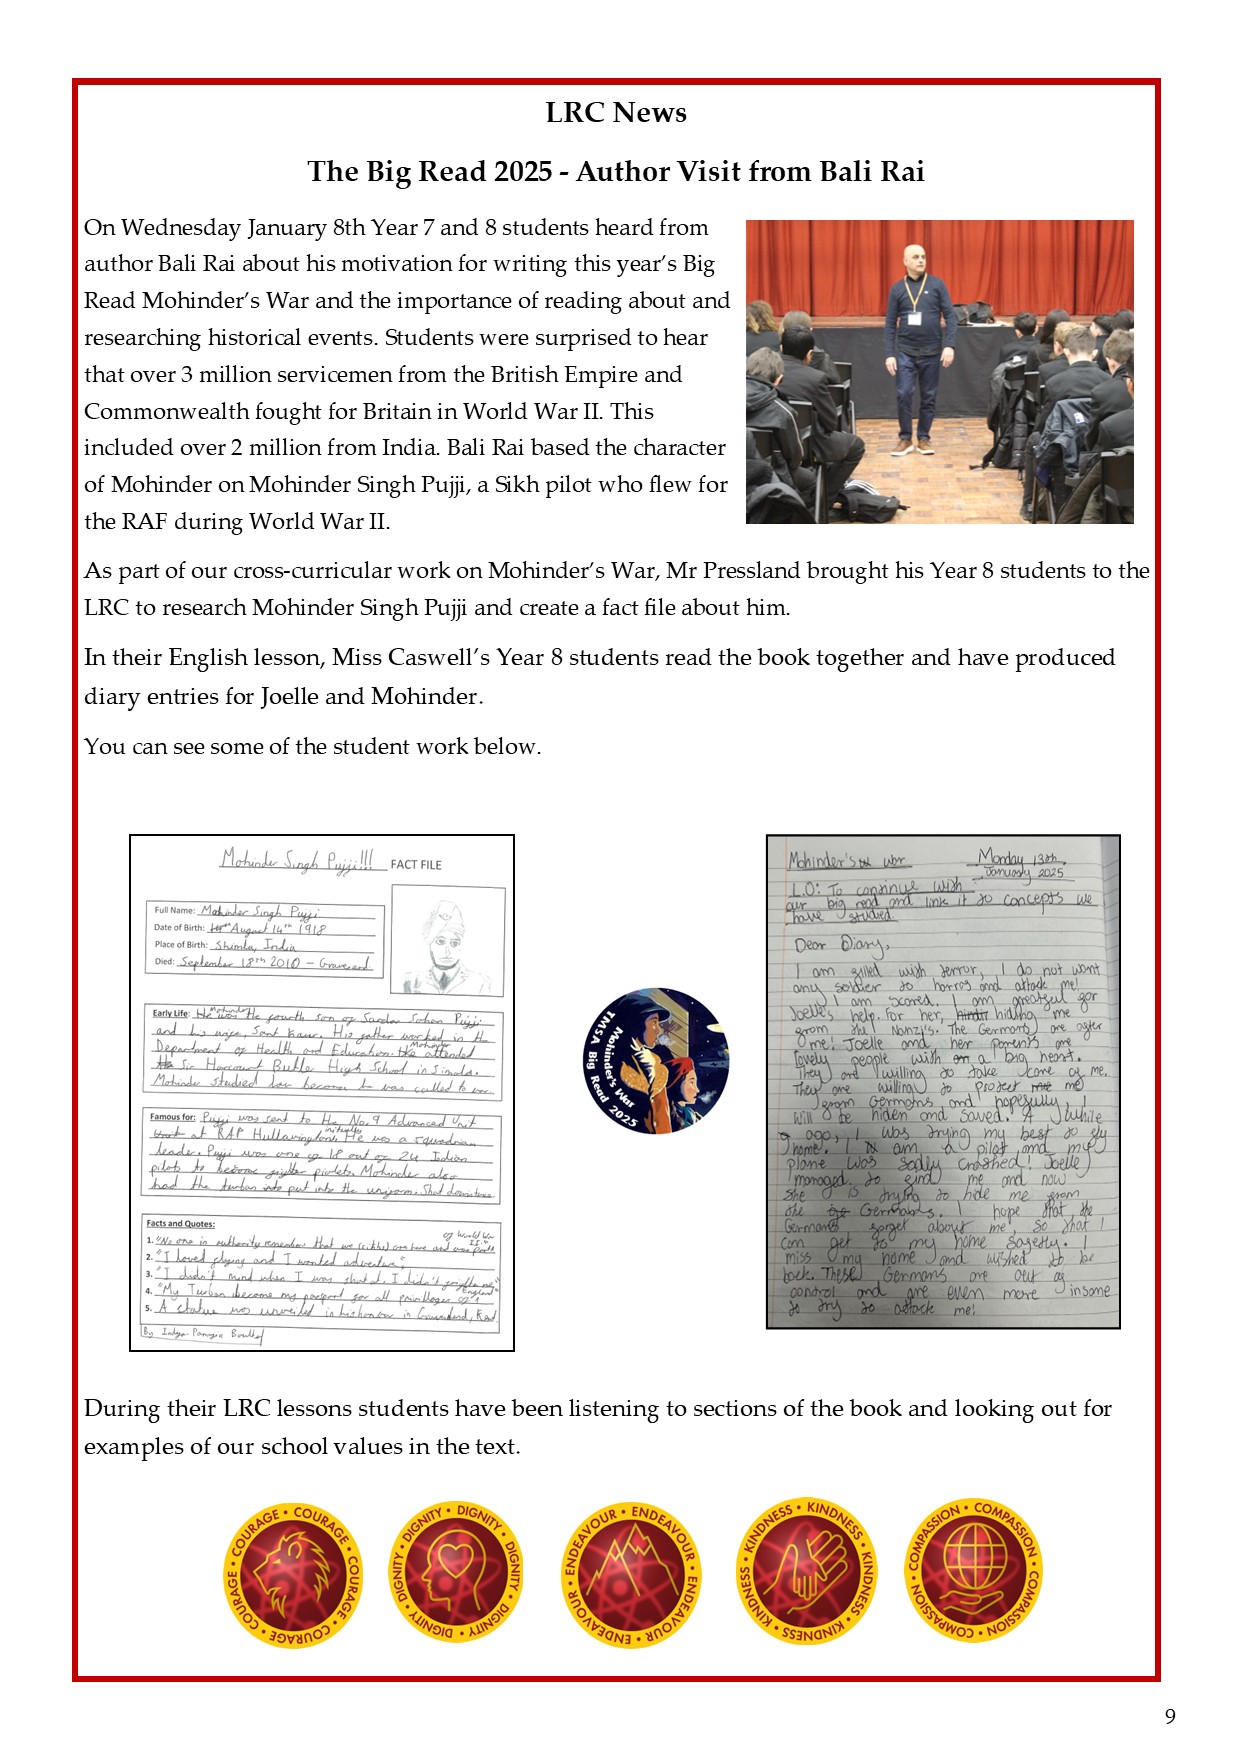 LRC News
The Big Read 2025 - Author Visit from Bali Rai
On Wednesday January 8th Year 7 and 8 students heard from
author Bali Rai about his motivation for writing this year's Big
Read Mohinder's War and the importance of reading about and
researching historical events. Students were surprised to hear
that over 3 million servicemen from the British Empire and
Commonwealth fought for Britain in World War II. This
included over 2 million from India. Bali Rai based the character
of Mohinder on Mohinder Singh Pujji, a Sikh pilot who flew for
the RAF during World War II.
As part of our cross-curricular work on Mohinder's War, Mr Pressland brought his Year 8 students to the
LRC to research Mohinder Singh Pujji and create a fact file about him.
In their English lesson, Miss Caswell's Year 8 students read the book together and have produced
diary entries for Joelle and Mohinder.
You can see some of the student work below.
Mohinder Singh Pujji!!! FACT FILE
Full Name: Mohinder Singh Pujji
Date of Birth: August 14th 1918
Place of Birth: Shimla, India
Died: September 18th 2010 - Gravesend
Early Life: He was the fourth son of Sardar Sohan Pujji
and his wife, Sant Kaur. His father worked in the
Department of Health and Education. Mohinder attended
Sir Harcourt Butler High School in Simla.
Mohinder studied law
Famous for: Pujji was sent to the No. 9 Advanced Unit
at RAF Hullavington. He was a squadron
leader. Pujji was one of 18 out of 24 Indian
pilots to become fighter Mohinder also
had the turban put into the uniform. Shot down
Facts and Quotes:
1. "No one in authority remember that we (sikhs) are here and was part of World War II."
2. "I loved flying and I wanted adventure"
3. "I didn't mind when I was shot at. I didn't
4. "My Turban become my passport for all privileges of England"
5. A statue was unveiled in in Gravesend, Kent.
By
Mohinder's War
TMSA Big Read 2025
Mohinder's war
Monday 13th
January 2025
L.O: To continue with
our big read and link it to concepts we
have studied
Dear Diary,
I am filled with terror, I do not want
any soldier to and attack me!
I am scared. I am greatful for
Joelle's help. For her, hiding me
from the The Germans are after
me! Joelle and her parents are
lovely people with a big heart.
They are willing to take care of me.
They are willing to protect me
from Germans and hopefully, I
will be hiden and saved. A while
ago, I was trying my best to fly
home. I am a pilot and my
plane was sadly crashed! Joelle
managed to find me and now
she is trying to hide me from
the Germans. I hope that the
Germans forget about me, so that I
can get to my home safetly. I
miss my home and wished to be
back. These Germans are out of
control and are even more insane
to try to attack me!
During their LRC lessons students have been listening to sections of the book and looking out for
examples of our school values in the text.
COURAGE • COURAGE • COURAGE • COURAGE • COURAGE •
DIGNITY • DIGNITY • DIGNITY • DIGNITY • DIGNITY •
ENDEAVOUR • ENDEAVOUR • ENDEAVOUR • ENDEAVOUR •
KINDNESS • KINDNESS • KINDNESS • KINDNESS • KINDNESS •
COMPASSION • COMPASSION • COMPASSION • COMPASSION •
9